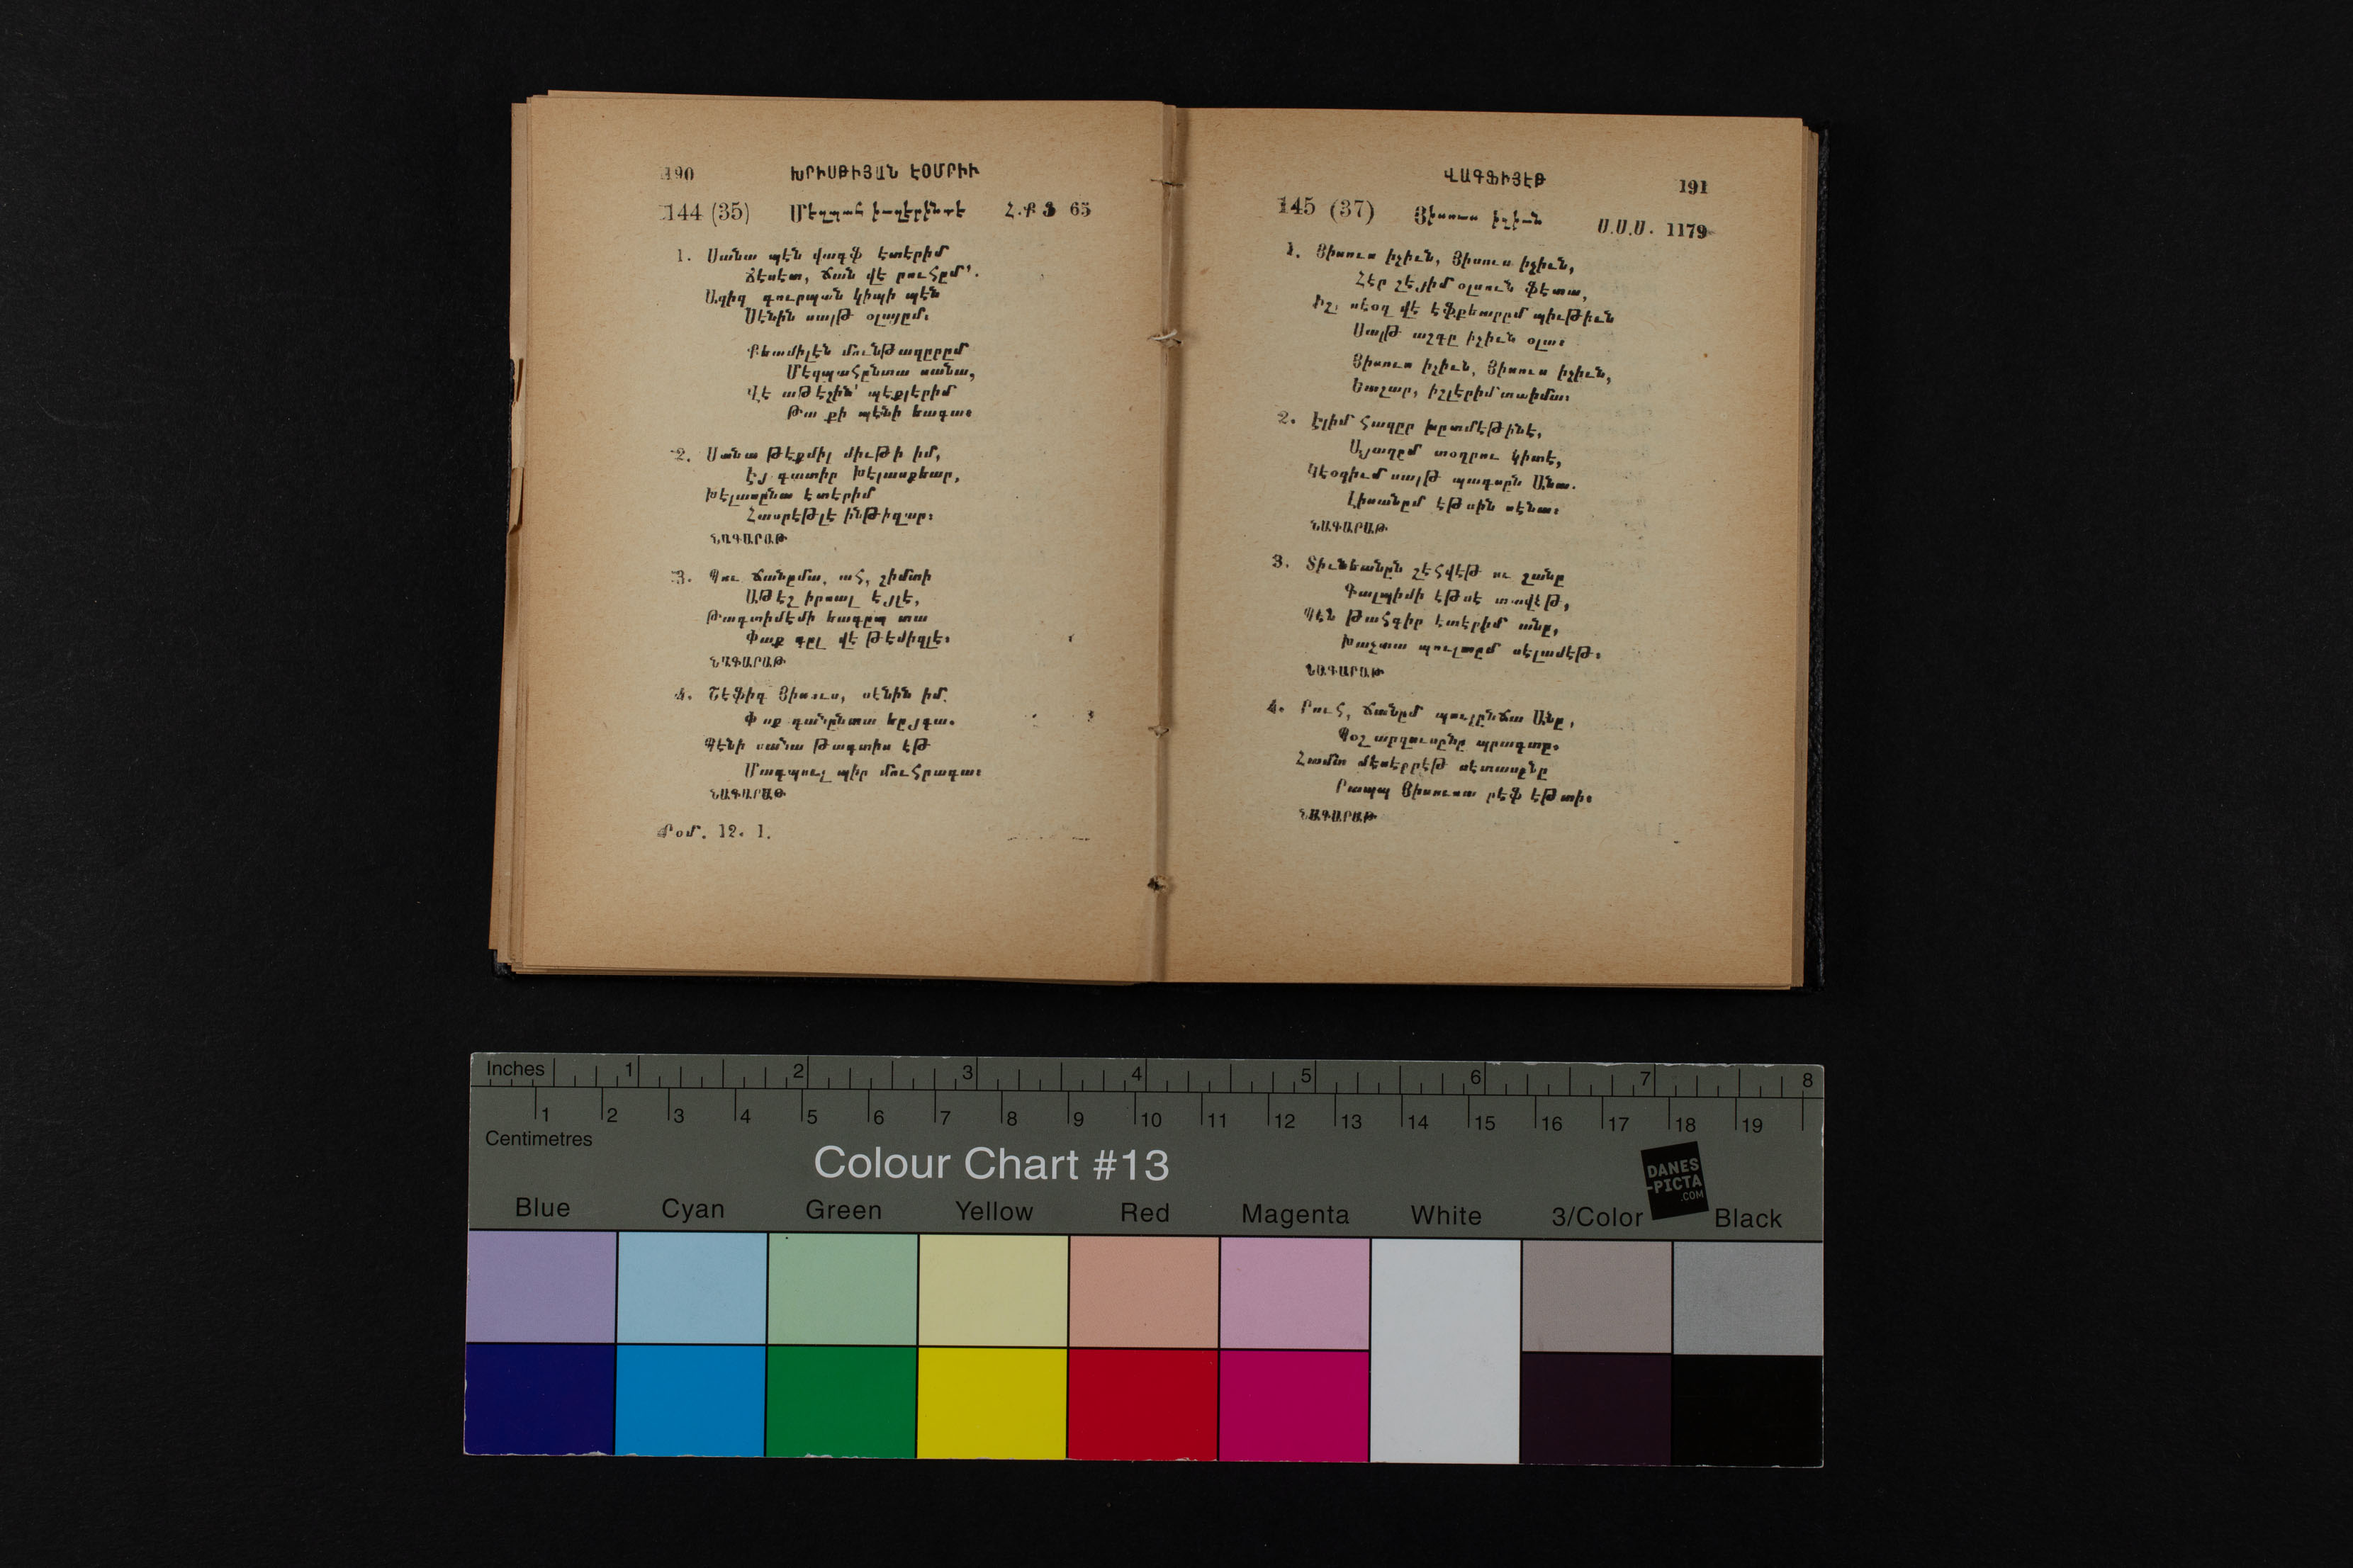 190 ԽՐԻՍԹԻՅԱՆ ԷՕՄՐԻՒ
144 (35) Մեզպահ իւզերինտէ Հ.Ք 3 65
1. Սանա պէն վագֆ էտէրիմ
Ճէսէտ, ճան վէ րուհըմ՛.
Ազիզ գուրպան կիպի պէն
Սէնին սայթ օլայըմ։
Քեամիլէն մունթազըրըմ
Մէզպահընտա սանա,
Վէ աթէշին՛ պէքլէրիմ
Թա քի պէնի եագա։
2. Սանա թէքմիլ միւթի իմ,
Էյ գատիր Խէլասքեար,
Խէլասընա էտէրիմ
Հասրէթլէ ինթիզար։
ՆԱԳԱՐԱԹ
3. Պու ճանըմա, ահ, շիմտի
Աթէշ իրսալ էյլէ,
Թագտիմէմի եագըպ տա
Փաք գըլ վէ թէմիզլէ։
ՆԱԳԱՐԱԹ
4. Շէֆիգ Յիսուս, սէնին իմ.
Փաք գանընտա եըյգա։
Պէնի սանա թագտիս էթ
Մագպուլ պիր մուհրագա։
ՆԱԳԱՐԱԹ
Րօմ. 12. 1.
ՎԱԳՖԻՅԷԹ 191
145 (37) Յիսուս իչիւն Ս.Ս.Ս. 1179
1. Յիսուս իչիւն, Յիսուս իչիւն,
Հէր շէյիմ օլսուն ֆէտա,
Իշ, սէօզ վէ էֆքեարըմ պիւթիւն
Սայթ աշգը իչիւն օլա։
Յիսուս իչիւն, Յիսուս իչիւն,
Եաշար, իշլէրիմ տաիմա։
2. Էլիմ հազըր խըտմէթինէ,
Այաղըմ տօղրու կիտէ,
Կէօզիւմ սայթ պագսըն Անա.
Լիսանըմ էթսին սէնա։
ՆԱԳԱՐԱԹ
3. Տիւնեանըն շէհվէթ ու շանը
Գալպիմի էթսէ տավէթ,
Պէն թահգիր էտէրիմ անը,
Խաչտա պուլտըմ սէլամէթ։
ՆԱԳԱՐԱԹ
4. Րուհ, ճանըմ պուլընճա Անը,
Պօշ արզուսընը պրագտը։
Համտ մէսէրրէթ սէտասընը
Րապպ Յիսուսա րէֆ էթտի։
ՆԱԳԱՐԱԹ
Inches 1 2 3 4 5 6 7 8
1 2 3 4 5 6 7 8 9 10 11 12 13 14 15 16 17 18 19
Centimetres
Colour Chart #13
DANES
-PICTA
.COM
Blue Cyan Green Yellow Red Magenta White 3/Color Black